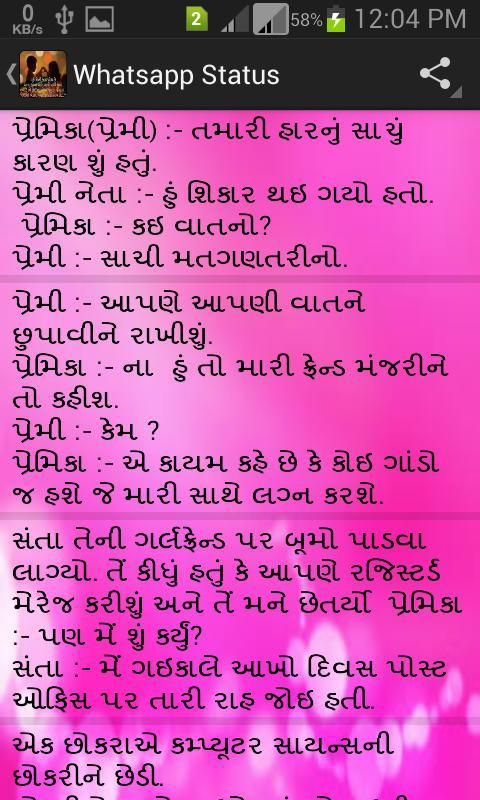 0
KB/s
2
58%
12:04 PM
Whatsapp Status
પ્રેમિકા(પ્રેમી) :- તમારી હારનું સાચું
કારણ શું હતું.
પ્રેમી નેતા :- હું શિકાર થઇ ગયો હતો.
પ્રેમિકા :- કઇ વાતનો?
પ્રેમી :- સાચી મતગણતરીનો.
પ્રેમી :- આપણે આપણી વાતને
છુપાવીને રાખીશું.
પ્રેમિકા :- ના હું તો મારી ફ્રેન્ડ મંજરીને
તો કહીશ.
પ્રેમી :- કેમ ?
પ્રેમિકા :- એ કાયમ કહે છે કે કોઇ ગાંડો
જ હશે જે મારી સાથે લગ્ન કરશે.
સંતા તેની ગર્લફ્રેન્ડ પર બૂમો પાડવા
લાગ્યો. તેં કીધું હતું કે આપણે રજિસ્ટર્ડ
મેરેજ કરીશું અને તેં મને છેતર્યો પ્રેમિકા
:- પણ મેં શું કર્યું?
સંતા :- મેં ગઇકાલે આખો દિવસ પોસ્ટ
ઓફિસ પર તારી રાહ જોઇ હતી.
એક છોકરાએ કમ્પ્યૂટર સાયન્સની
છોકરીને છેડી.